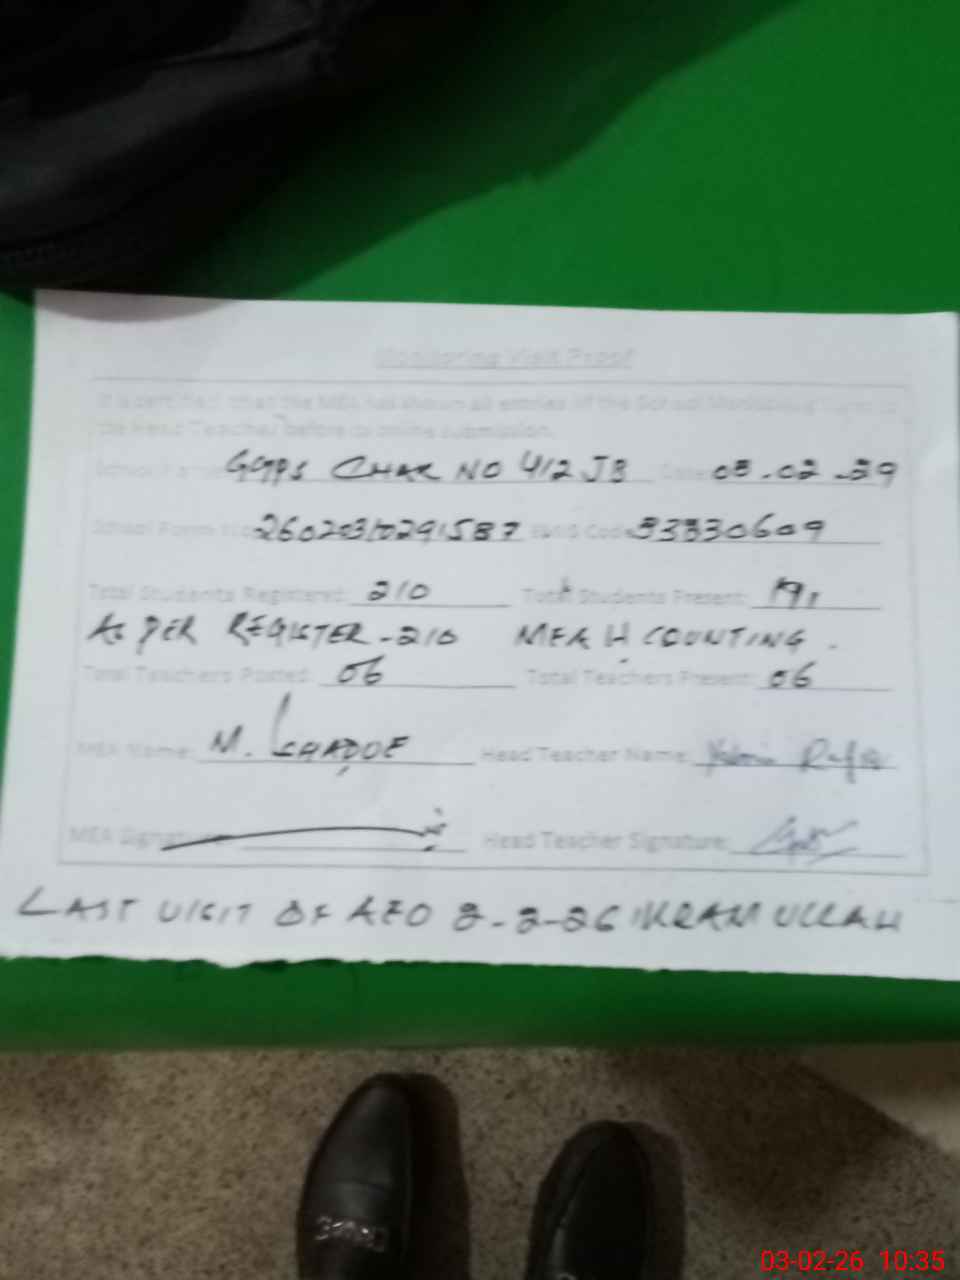 Monitoring Visit Proof
It is certified that the MEA has shown all entries of the School Monitoring Form to
the Head Teacher before its online submission.
School Name: GGPS CHAK NO 412 JB Date:
School Form No: EMIS Code: 33330609
Total Students Registered: 210 Total Students Present: 191
AS PER REGISTER - 210 MEA H COUNTING.
Total Teachers Posted: 06 Total Teachers Present: 06
MEA Name: M. Head Teacher Name:
MEA Signature: Head Teacher Signature:
LAST VISIT OF AEO 2-2-26 IKRAM ULLAH
03-02-26 10:35